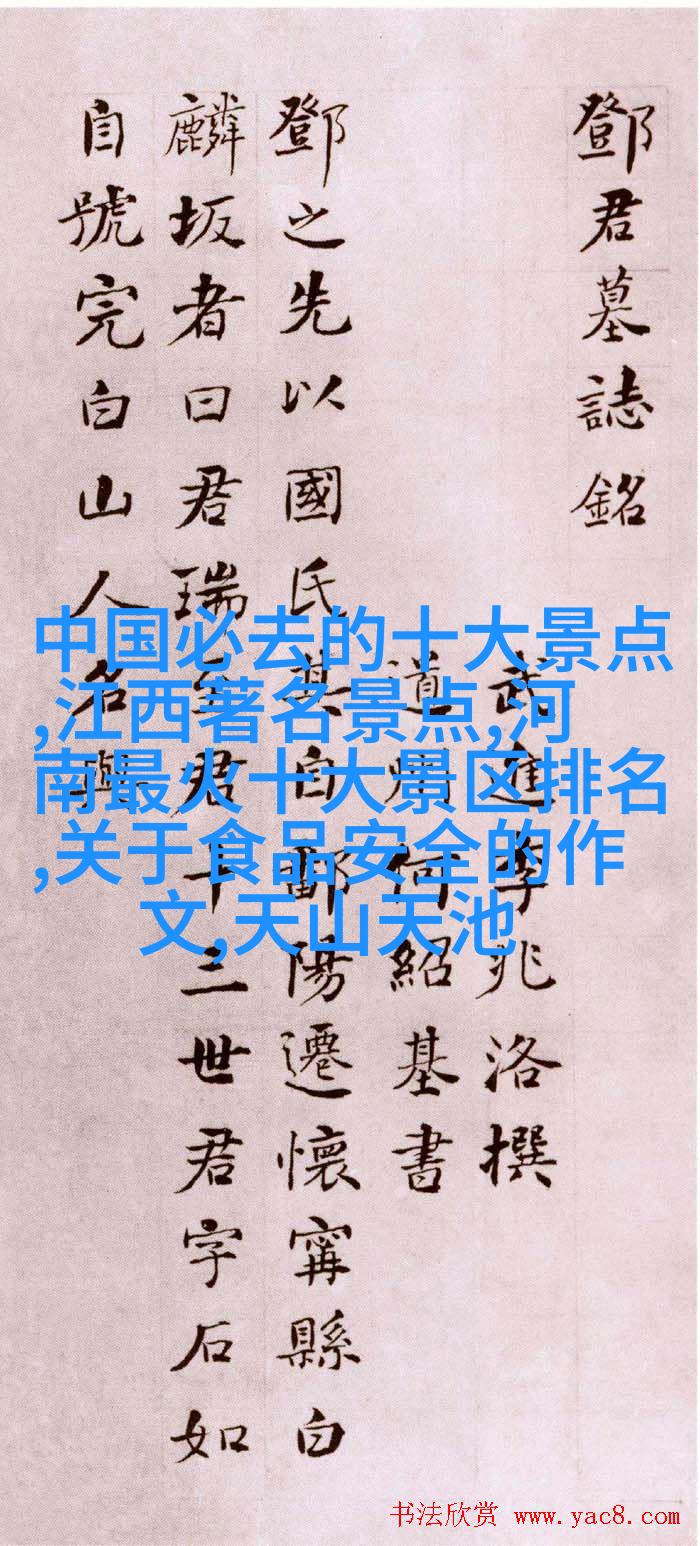 鄧君墓誌銘
武進李兆洛撰
道州何紹基書
鄧之先以國氏其自鄱陽遷懷甯縣白
麟坂者曰君瑞至君十三世君字石如
自號完白山人名與
中国必去的十大景点
,江西著名景点,河
南最火十大景区排名
,关于食品安全的作
文,天山天池
书法欣赏 www.yac8.com